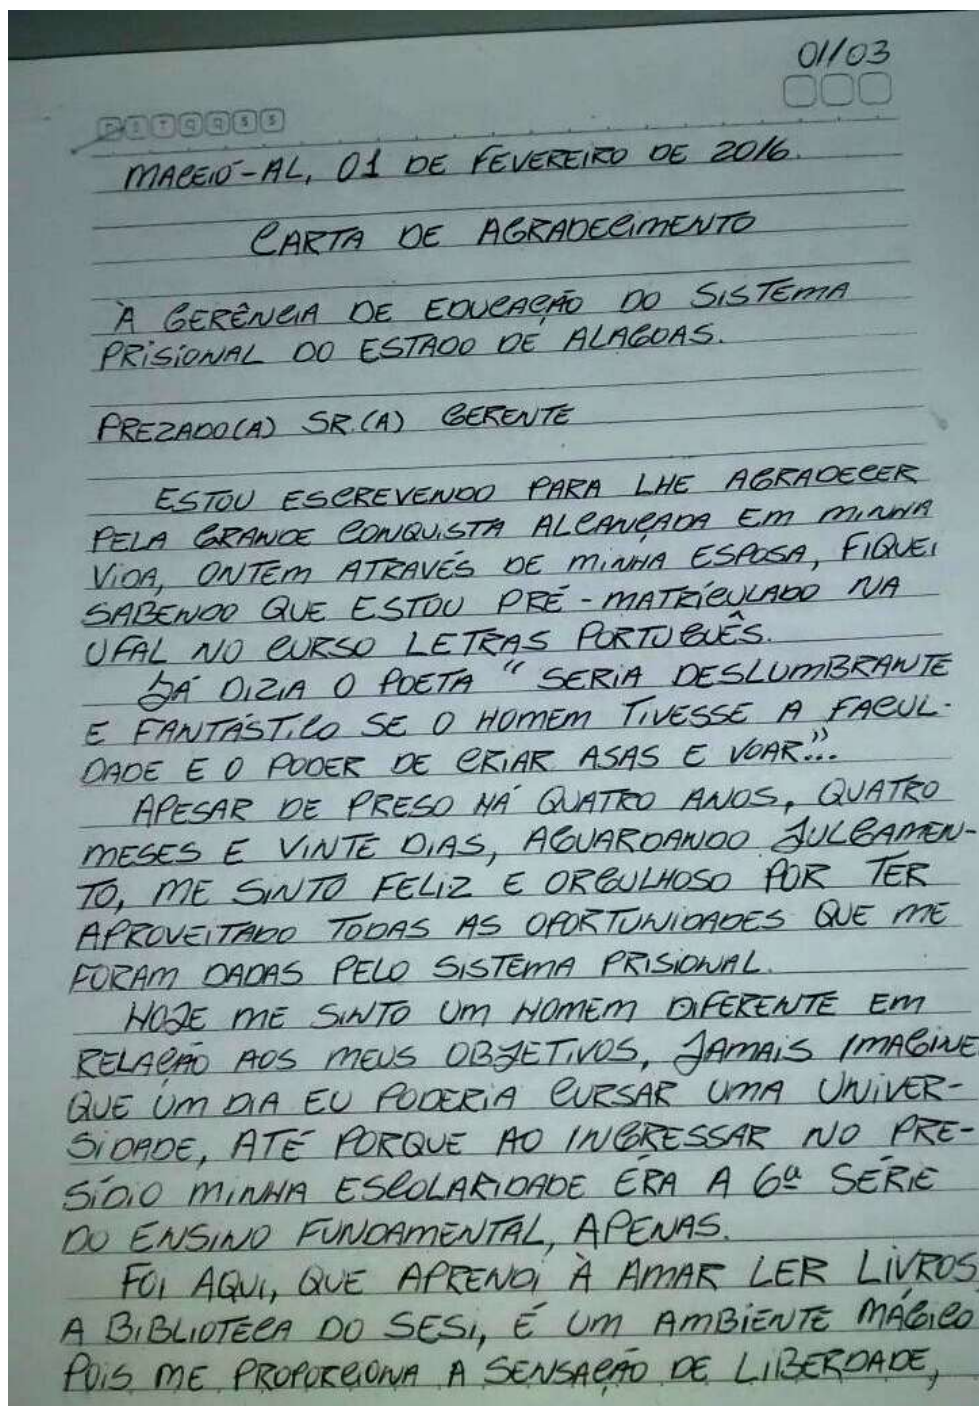 01/03
D S T Q Q S S
MACEIÓ-AL, 01 DE FEVEREIRO DE 2016.
CARTA DE AGRADECIMENTO
À GERÊNCIA DE EDUCAÇÃO DO SISTEMA
PRISIONAL DO ESTADO DE ALAGOAS.
PREZADO(A) SR.(A) GERENTE
ESTOU ESCREVENDO PARA LHE AGRADECER
PELA GRANDE CONQUISTA ALCANÇADA EM MINHA
VIDA, ONTEM ATRAVÉS DE MINHA ESPOSA, FIQUEI
SABENDO QUE ESTOU PRÉ-MATRÍCULADO NA
UFAL NO CURSO LETRAS PORTUGUÊS.
JÁ DIZIA O POETA " SERIA DESLUMBRANTE
E FANTÁSTICO SE O HOMEM TIVESSE A FACUL-
DADE E O PODER DE CRIAR ASAS E VOAR"...
APESAR DE PRESO HÁ QUATRO ANOS, QUATRO
MESES E VINTE DIAS, AGUARDANDO JULGAMEN-
TO, ME SINTO FELIZ E ORGULHOSO POR TER
APROVEITADO TODAS AS OPORTUNIDADES QUE ME
FORAM DADAS PELO SISTEMA PRISIONAL.
HOJE ME SINTO UM HOMEM DIFERENTE EM
RELAÇÃO AOS MEUS OBJETIVOS, JAMAIS IMAGINE
QUE UM DIA EU PODERIA CURSAR UMA UNIVER-
SIDADE, ATÉ PORQUE AO INGRESSAR NO PRE-
SÍDIO MINHA ESCOLARIDADE ERA A 6ª SÉRIE
DO ENSINO FUNDAMENTAL, APENAS.
FOI AQUI, QUE APRENDI À AMAR LER LIVROS
A BIBLIOTECA DO SESI, É UM AMBIENTE MÁGICO
POIS ME PROPORCIONA A SENSAÇÃO DE LIBERDADE,